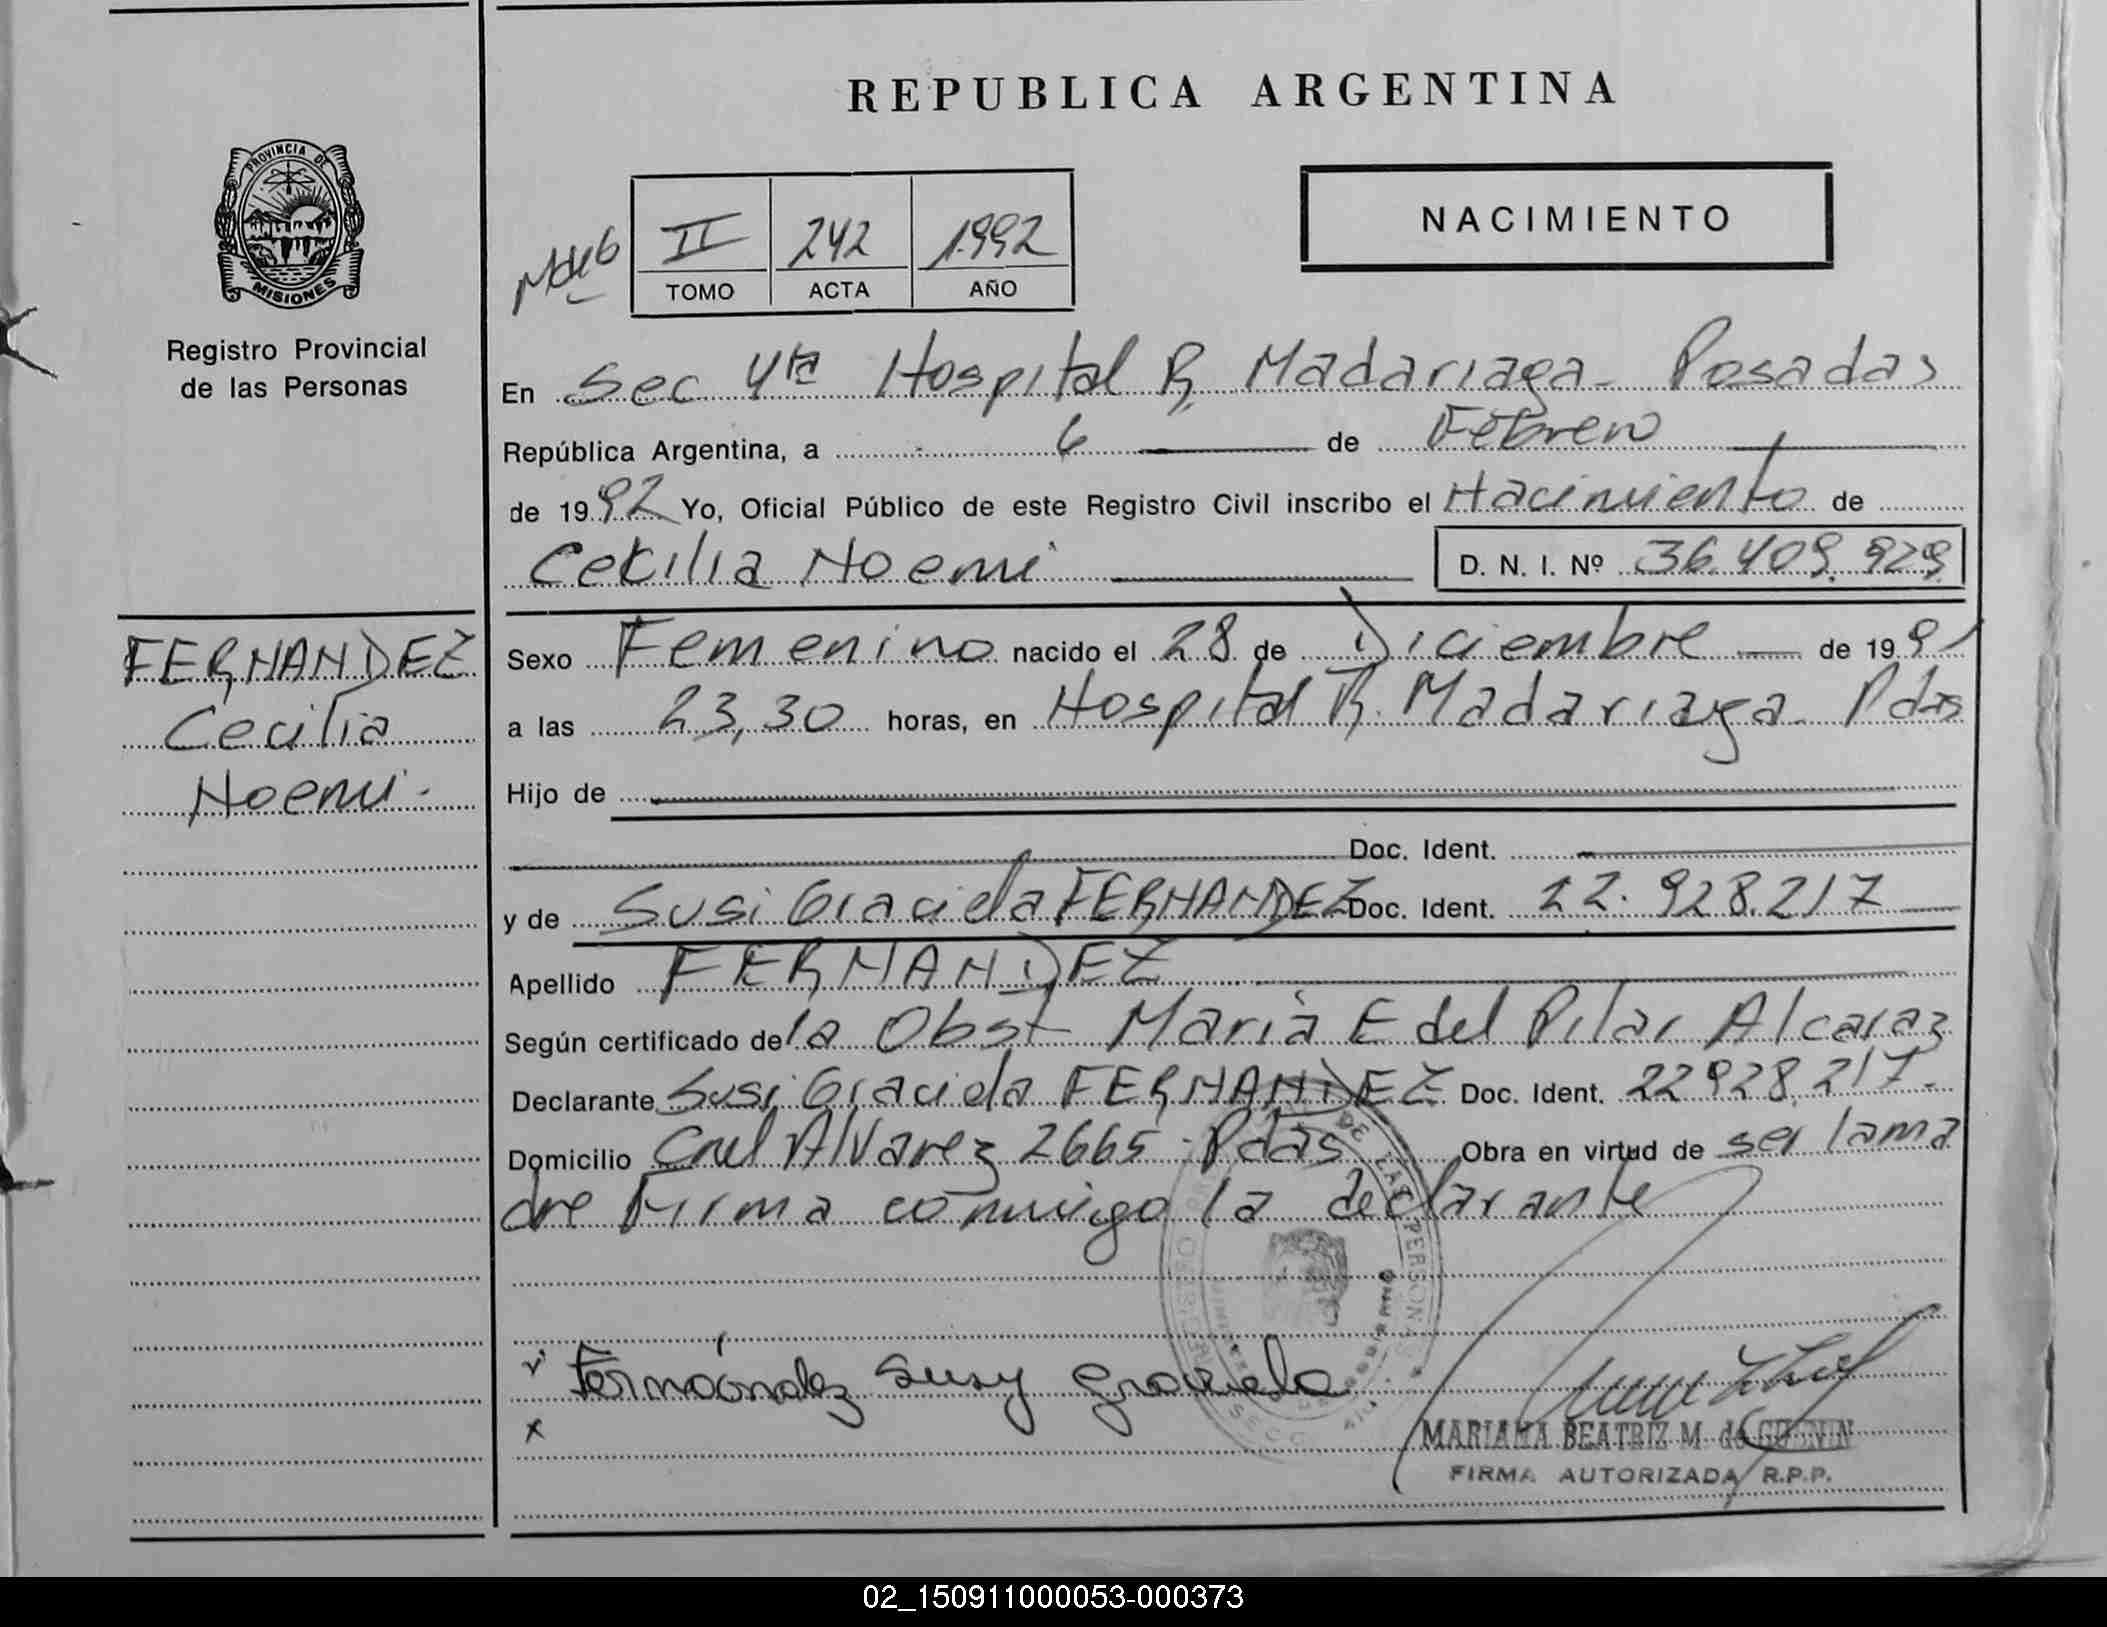 REPUBLICA ARGENTINA
PROVINCIA DE
MISIONES
Registro Provincial
de las Personas
II 242 1992
TOMO ACTA AÑO
NACIMIENTO
En Sec 4ta Hospital R. Madariaga - Posadas
República Argentina, a 6 de Febrero
de 1992 Yo, Oficial Público de este Registro Civil inscribo el Nacimiento de
Cecilia Noemi D. N. I. Nº 36.409.929
FERNANDEZ
Cecilia
Noemi.
Sexo Femenino nacido el 28 de Diciembre de 1991
a las 23,30 horas, en Hospital R. Madariaga - Pdas
Hijo de
Doc. Ident.
y de Susi Graciela FERNANDEZ Doc. Ident. 22.928.217
Apellido FERNANDEZ
Según certificado de la Obst María E del Pilar Alcaraz
Declarante Susi Graciela FERNANDEZ Doc. Ident. 22928.217.
Domicilio Cnel Alvarez 2665 - Pdas Obra en virtud de ser la ma
dre Firma conmigo la declarante
DE LAS PERSONAS
Fernández Susy Graciela
MARIANA BEATRIZ M. de
FIRMA AUTORIZADA R.P.P.
02_150911000053-000373